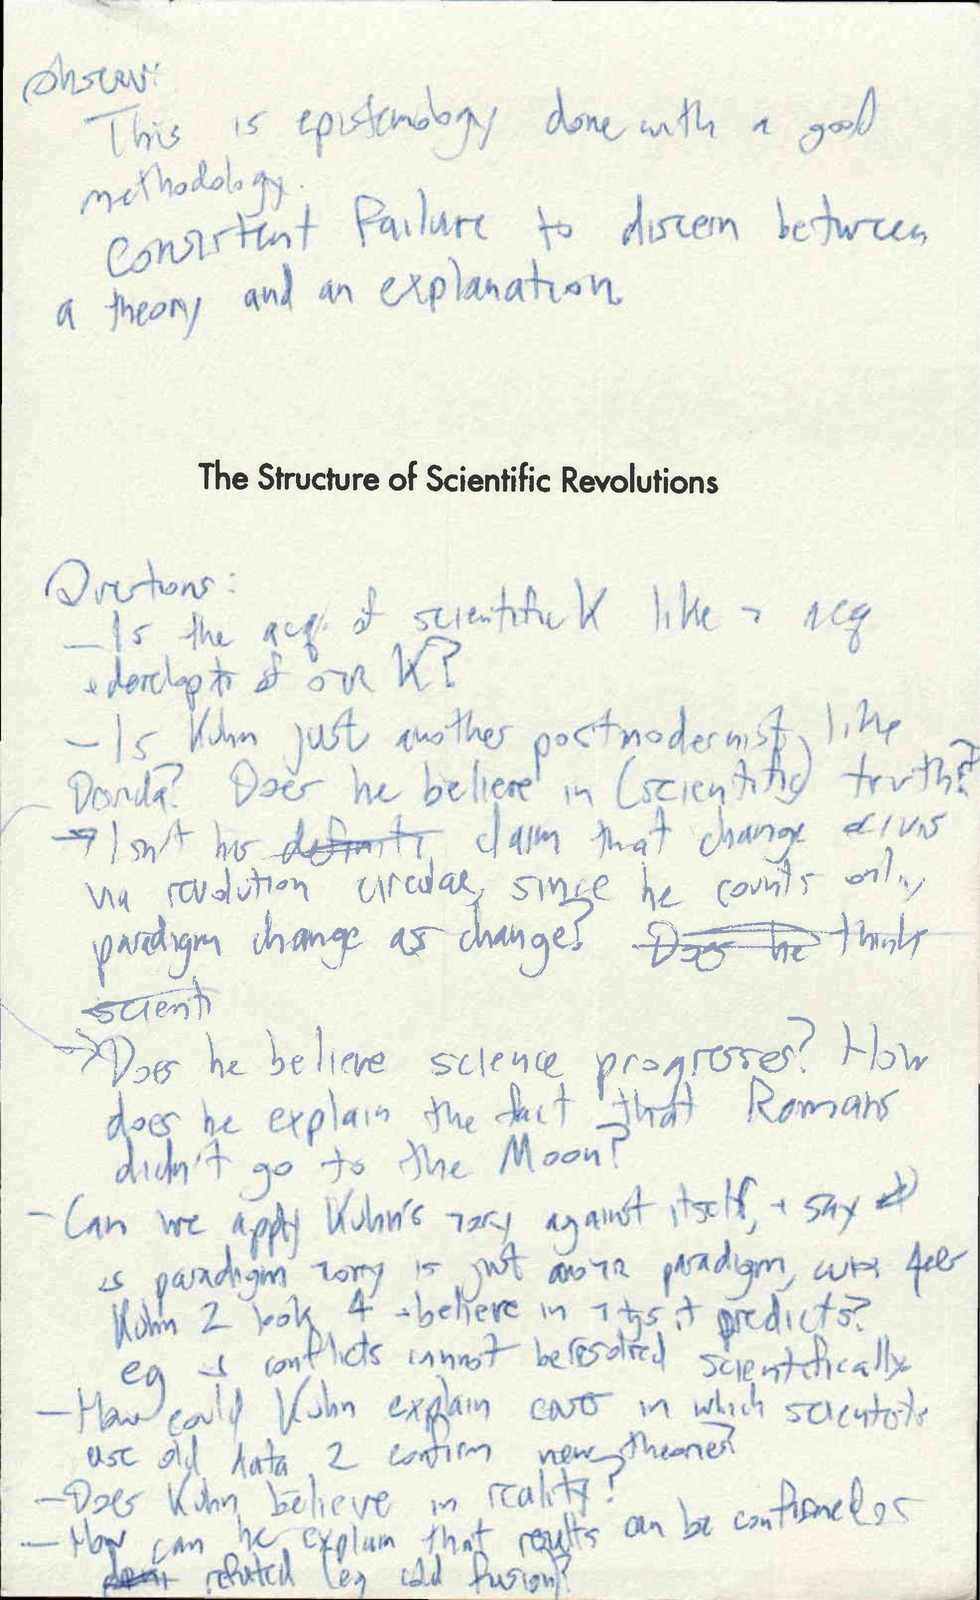 This is epistemology done with a good
methodology.
Consistent Failure to discern between
a theory and an explanation.
The Structure of Scientific Revolutions
Questions:
— Is the acq. of scientific K like acq
+ developt of our K?
— Is Kuhn just another postmodernist, like
Does he believe in (scientific) truth?
→ Isn't his claim that change occurs
via revolution circular, since he counts only
paradigm change as change? Does he think
scienti
→ Does he believe science progresses? How
does he explain the fact that Romans
didn't go to the Moon?
— Can we apply Kuhn's against itself, + say
is paradigm is just paradigm,
Kuhn 2 look 4 + believe in it predicts?
eg conflicts cannot be resolved scientifically
— How could Kuhn explain cases in which scientists
use old data 2 confirm new theories?
— Does Kuhn believe in reality?
— How can he explain that results can be confirmed or
refuted (eg cold fusion)?